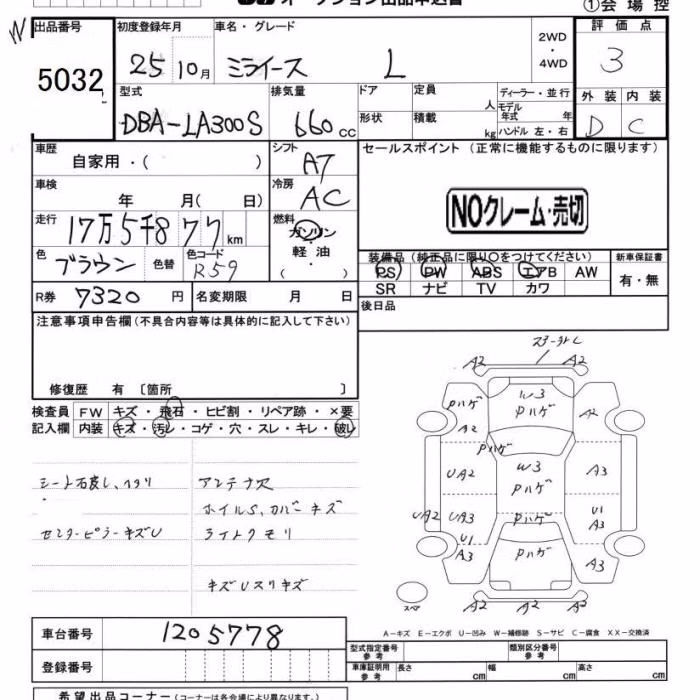 オークション出品申込書
①会場控
W
出品番号
5032
初度登録年月
25 10月
車名・グレード
ミライース L
2WD
・
4WD
評価点
3
外装 内装
D C
型式
DBA-LA300S
排気量
660 cc
ドア
形状
定員
人
積載
kg
ディーラー・並行
モデル年式 年
ハンドル 左・右
車歴
自家用・( )
シフト
AT
セールスポイント (正常に機能するものに限ります)
車検
年 月( 日)
冷房
AC
NOクレーム・売切
走行
17万5千877km
燃料
ガソリン
・
軽油
・
( )
色
ブラウン
色替
色コード
R59
装備品 (純正品に限り○をつけてください)
PS PW ABS エアB AW
SR ナビ TV カワ
新車保証書
有・無
R券 7320円
名変期限 月 日
後日品
注意事項申告欄(不具合内容等は具体的に記入して下さい)
修復歴 有 〔箇所 〕
検査員
記入欄
FW キズ・飛石・ヒビ割・リペア跡・×要
内装 キズ・汚レ・コゲ・穴・スレ・キレ・破レ
アンテナ欠
ホイルS、カバーキズ
センターピラーキズU
ライトクモリ
キズUスリキズ
A2 A2
W3
Pハゲ
Pハゲ
A2
A2
Pハゲ
UA2
W3
Pハゲ
A3
UA2
UA3
U1
A3
U1
A3
Pハゲ
Pハゲ
A3
A2 A2 A2
スペア
A-キズ E-エクボ U-凹み W-補修跡 S-サビ C-腐食 XX-交換済
車台番号
1205778
登録番号
型式指定番号
参考
類別区分番号
参考
車庫証明用
参考
長さ cm
幅 cm
高さ cm
希望出品コーナー(コーナーは各会場により異なります。)